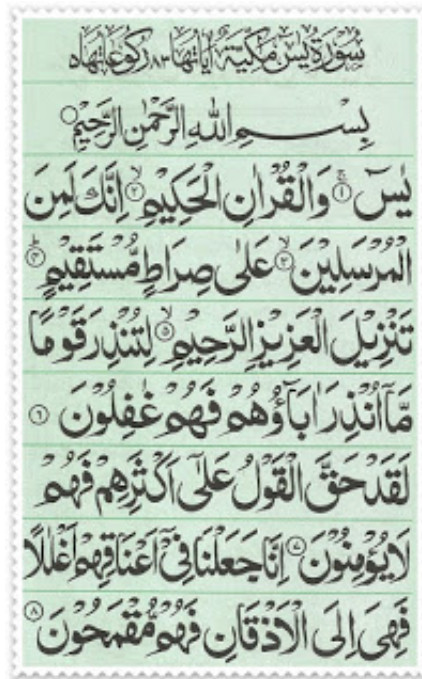 سُوْرَةُ يٰسٓ مَكِّيَّةٌ اٰيَاتُهَا ٨٣ رُكُوْعَاتُهَا ٥
بِسْمِ اللّٰهِ الرَّحْمٰنِ الرَّحِيْمِ
يٰسٓ ۚ﴿١﴾ وَالْقُرْاٰنِ الْحَكِيْمِ ۙ﴿٢﴾ اِنَّكَ لَمِنَ
الْمُرْسَلِيْنَ ۙ﴿٣﴾ عَلٰى صِرَاطٍ مُّسْتَقِيْمٍ ؕ﴿٤﴾
تَنْزِيْلَ الْعَزِيْزِ الرَّحِيْمِ ۙ﴿٥﴾ لِتُنْذِرَ قَوْمًا
مَّاۤ اُنْذِرَ اٰبَآؤُهُمْ فَهُمْ غٰفِلُوْنَ ﴿٦﴾
لَقَدْ حَقَّ الْقَوْلُ عَلٰۤى اَكْثَرِهِمْ فَهُمْ
لَا يُؤْمِنُوْنَ ﴿٧﴾ اِنَّا جَعَلْنَا فِيْۤ اَعْنَاقِهِمْ اَغْلٰلًا
فَهِىَ اِلَى الْاَذْقَانِ فَهُمْ مُّقْمَحُوْنَ ﴿٨﴾